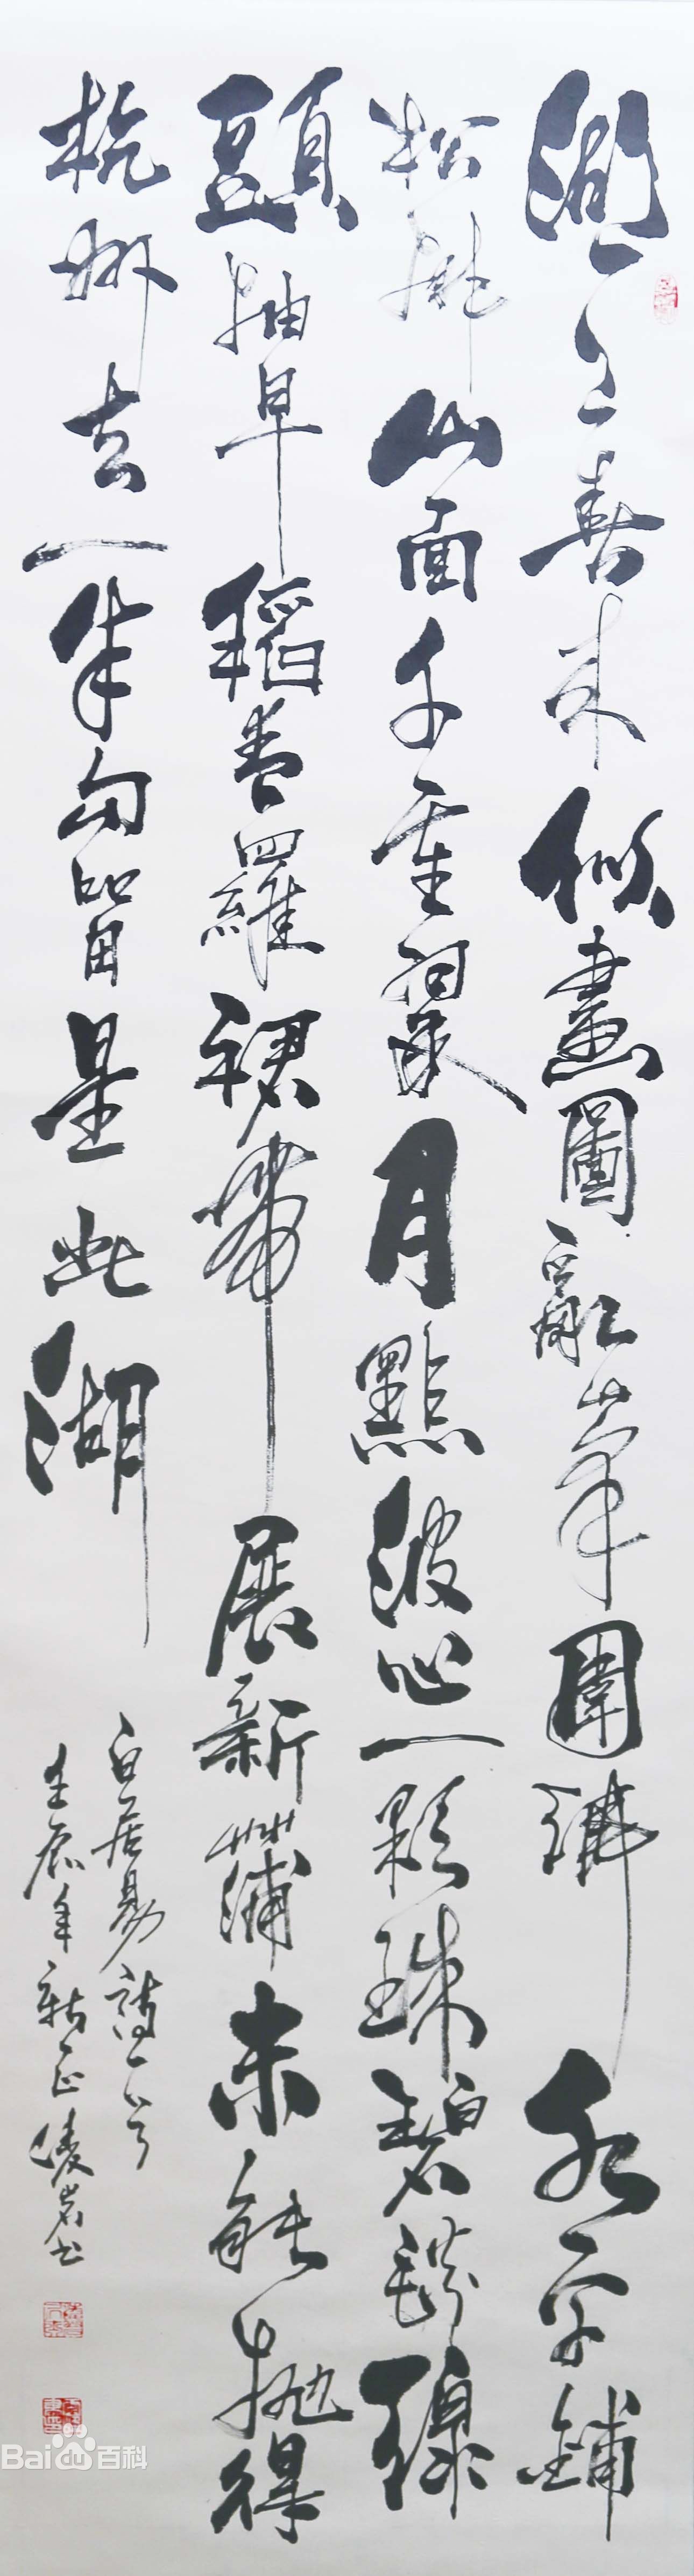 湖上春來似畫圖亂峯圍繞水平鋪
松排山面千重翠月點波心一顆珠碧毯線
頭抽早稻青羅裙帶展新蒲未能拋得
杭州去一半勾留是此湖
白居易詩一首
壬辰年新正凌岩书
Baidu百科